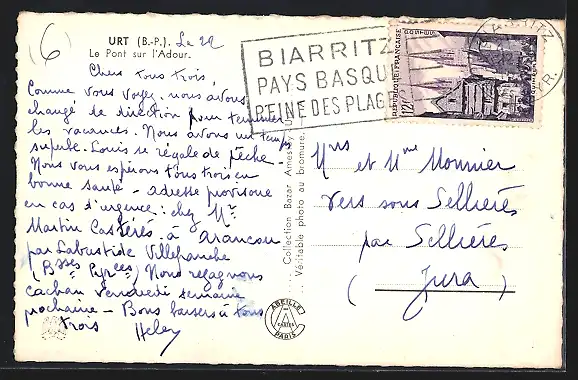 (6)
URT (B.-P.). Le 22
Le Pont sur l'Adour.
Chers tous trois,
Comme vous voyez, nous avons
changé de direction pour terminer
les vacances. Nous avons un temps
superbe. Louis se régale de pêche.
Nous vous espérons tous trois en
bonne santé - adresse provisoire
en cas d'urgence : chez Mr
Martin Castérès à Arancou
par Labastide Villefranche
(Bsses Pyrées) Nous regagnons
cachan vendredi semaine
prochaine - Bons baisers à tous
trois
BIARRITZ
PAYS BASQUE
REINE DES PLAGES
REPUBLIQUE FRANÇAISE
12F
Collection Bazar Amestoy, U
Véritable photo au bromure.
ABEILLE
CARTES
PARIS
et Mme Monnier
Vers sous Sellières
par Sellières
(Jura)